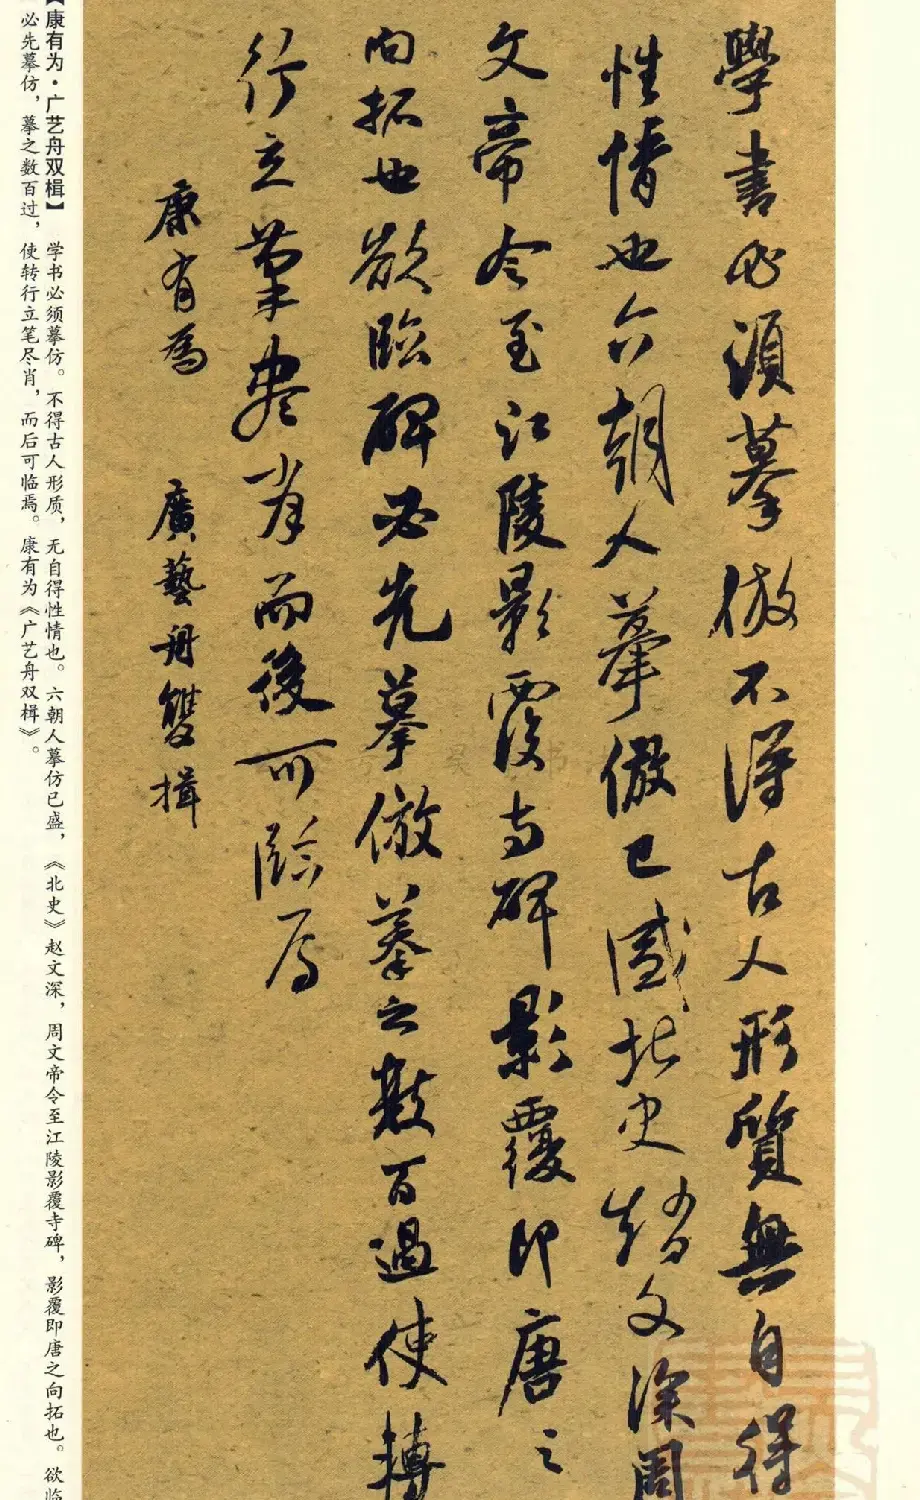 學書必須摹倣不得古人形質無自得
性情也六朝人摹倣已盛北史趙文深周
文帝令至江陵影覆寺碑影覆即唐之
向拓也欲臨碑必先摹倣摹之數百過使轉
行立筆盡肖而後可臨焉
康有爲 廣藝舟雙楫
【康有为·广艺舟双楫】 学书必须摹仿。不得古人形质，无自得性情也。六朝人摹仿已盛，《北史》赵文深，周文帝令至江陵影覆寺碑，影覆即唐之向拓也。欲临
必先摹仿，摹之数百过，使转行立笔尽肖，而后可临焉。康有为《广艺舟双楫》。